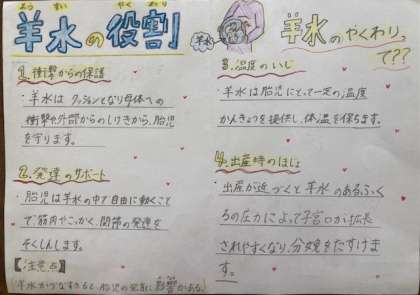 ようすい やくわり
羊水の役割
羊水
羊水のやくわりって???
1. 衝撃からの保護
・羊水は クッションとなり母体への
衝撃や外部からのしげきから、胎児
を守ります。
2. 発達のサポート
・胎児は羊水の中で自由に動くこと
で、筋肉やこっかく、関節の発達を
そくしんします。
【注意点】
羊水が少なすぎると、胎児の発育に影響がある。
3. 温度のいじ
・羊水は胎児にとって一定の温度
かんきょうを提供し、体温を保ちます。
4. 出産時のほじょ
・出産が近づくと羊水のあるふく
ろの圧力によって子宮口が拡長
されやすくなり、分娩をたすけま
す。